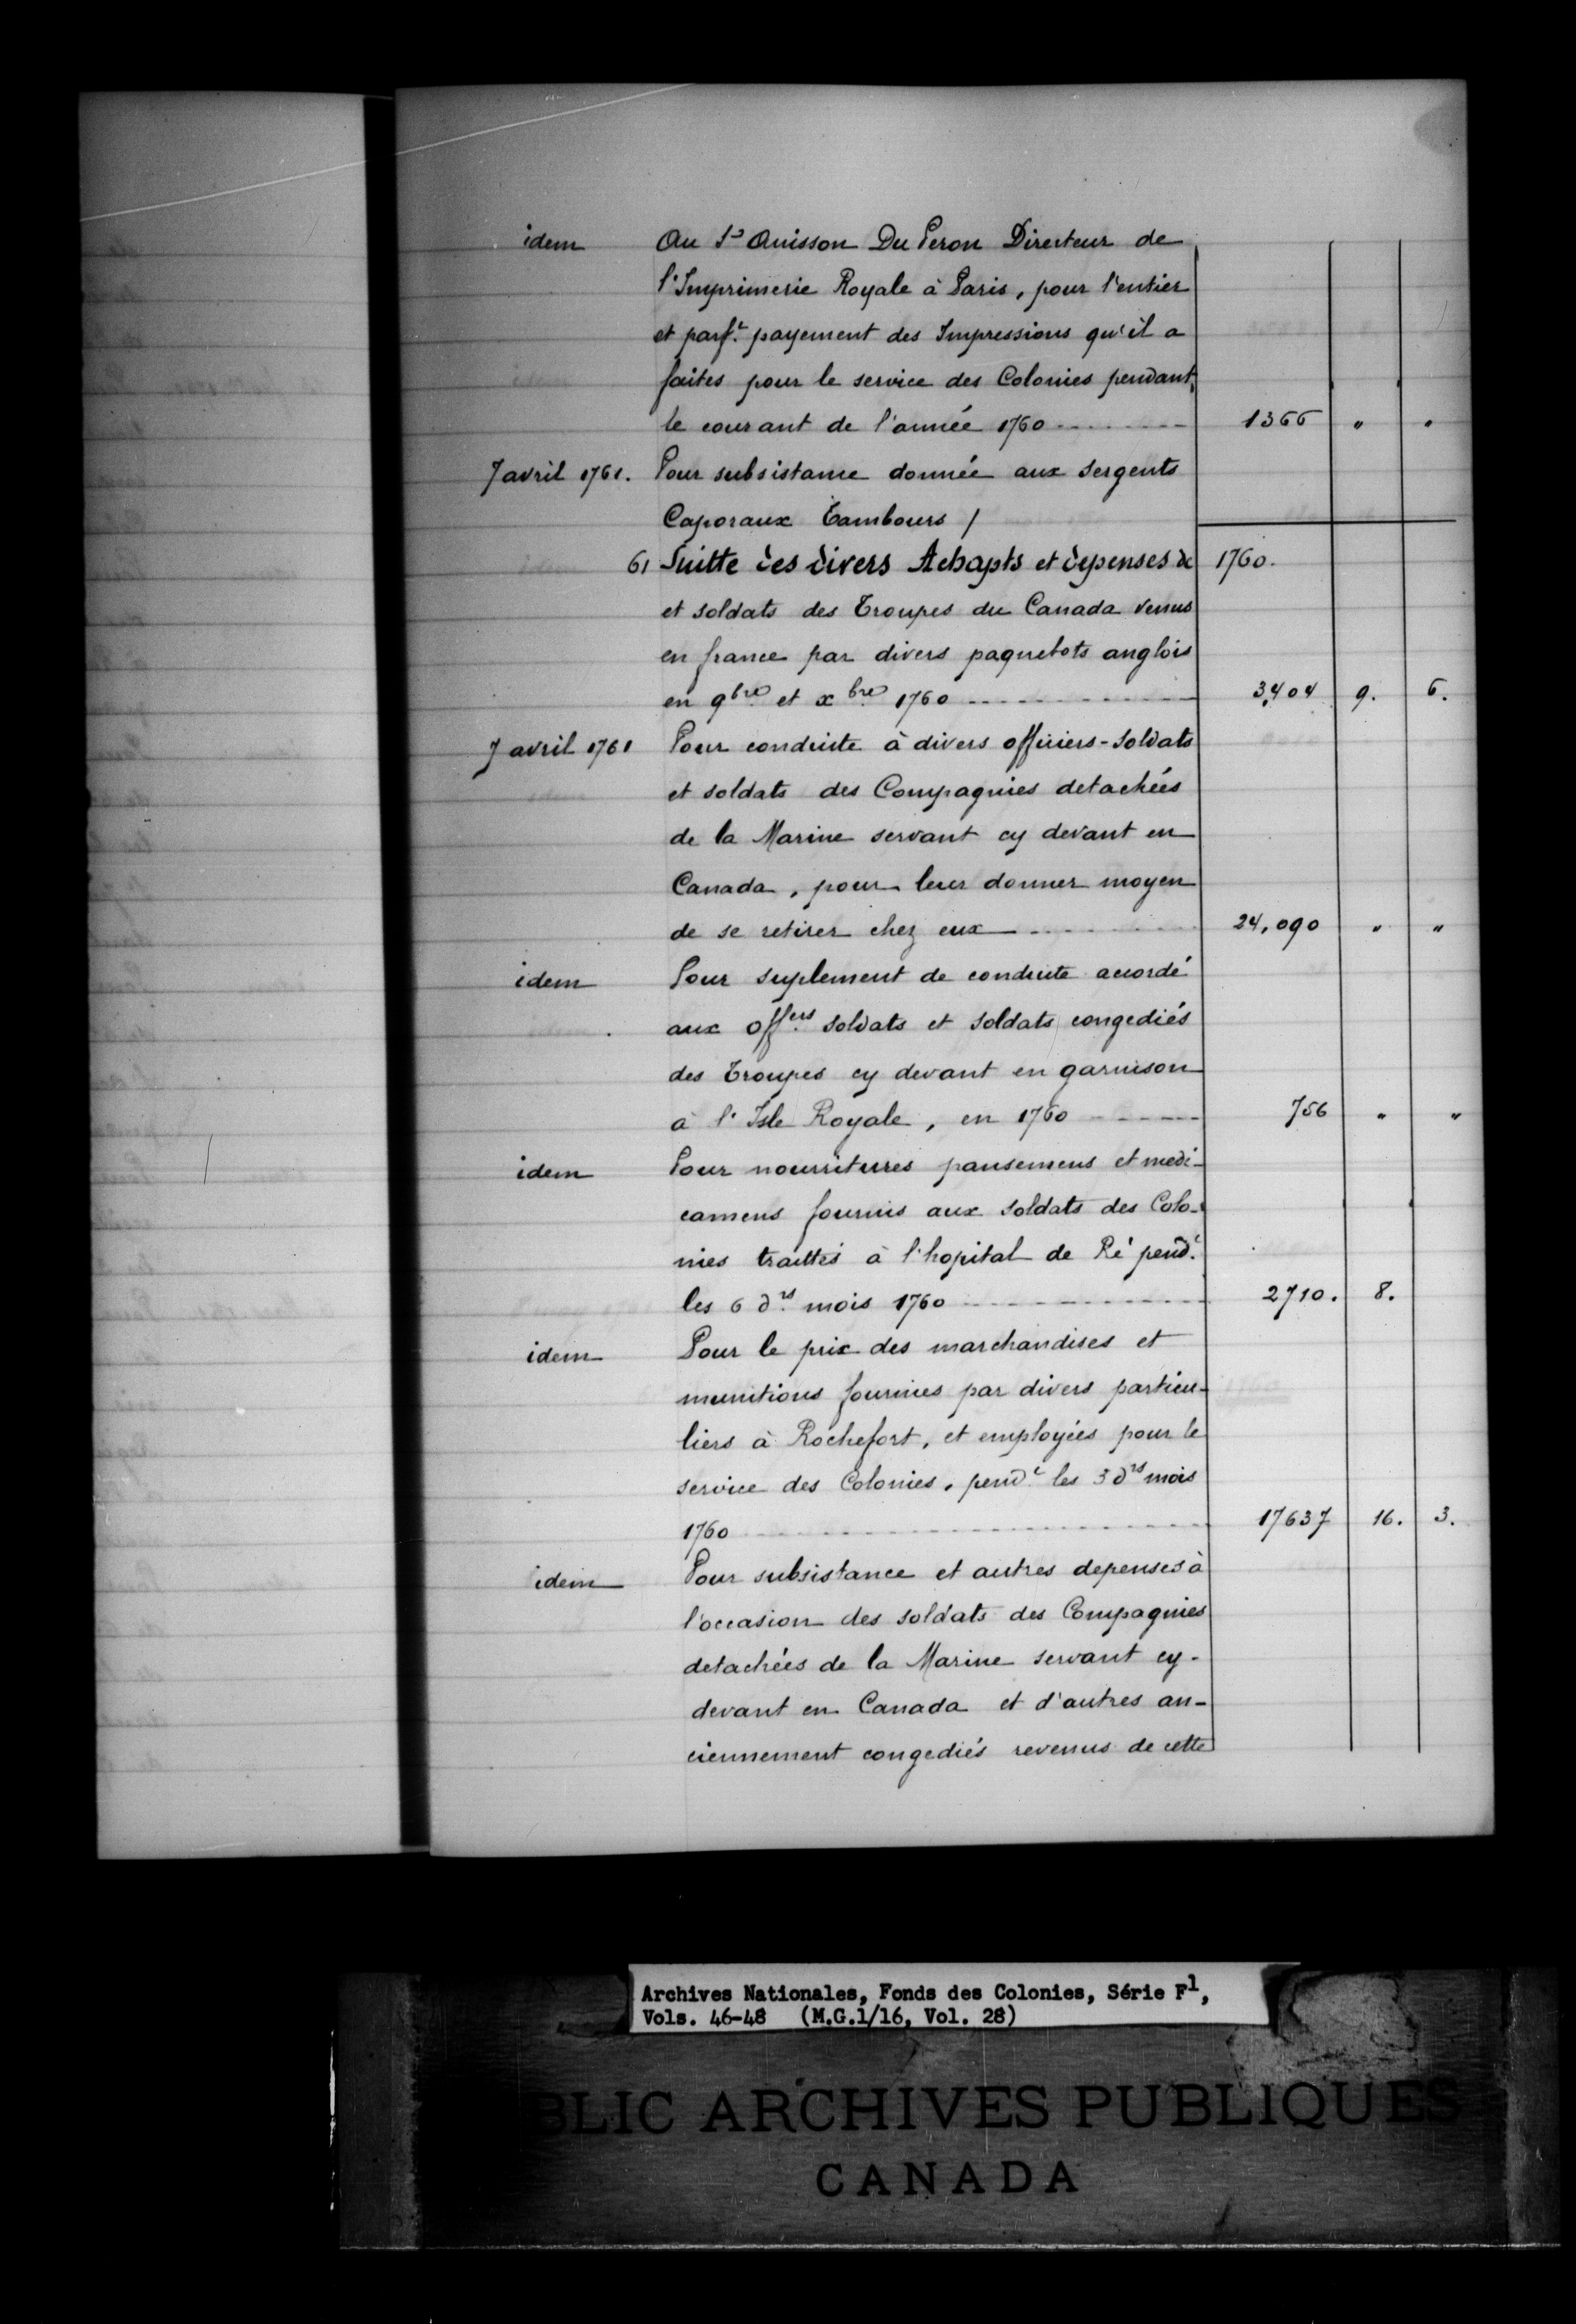 idem Au Sr Anisson Du Peron Directeur de
l'Imprimerie Royale à Paris, pour l'entier
et parft. payement des Impressions qu'il a
faites pour le service des Colonies pendant
le courant de l'année 1760 -------- 1366 " "
7 avril 1761. Pour subsistance donnée aux sergents
Caporaux Tambours /
61 Suitte des divers Achapts et depenses de 1760.
et soldats des Troupes du Canada venus
en france par divers paquebots anglois
en 9bre et xbre 1760 ------------ 3,404 9. 6.
7 avril 1761 Pour conduite à divers officiers-soldats
et soldats des Compagnies detachées
de la Marine servant cy devant en
Canada, pour leur donner moyen
de se retirer chez eux ---------- 24,090 " "
idem Pour suplement de conduite accordé
aux offers soldats et soldats congediés
des Troupes cy devant en garnison
à l'Isle Royale, en 1760 ------ 756 " "
idem Pour nourritures pansemens et medi-
camens fournis aux soldats des Colo-
nies traittés à l'hopital de Ré pendt.
les 6 drs mois 1760 ------------ 2710. 8.
idem Pour le prix des marchandises et
munitions fournies par divers particu-
liers à Rochefort, et employées pour le
service des Colonies, pendt les 3 drs mois
1760 ------------------------ 17637 16. 3.
idem Pour subsistance et autres depenses à
l'occasion des soldats des Compagnies
detachées de la Marine servant cy-
devant en Canada et d'autres an-
ciennement congediés revenus de cette
Archives Nationales, Fonds des Colonies, Série F1,
Vols. 46-48 (M.G.1/16, Vol. 28)
BLIC ARCHIVES PUBLIQUES
CANADA